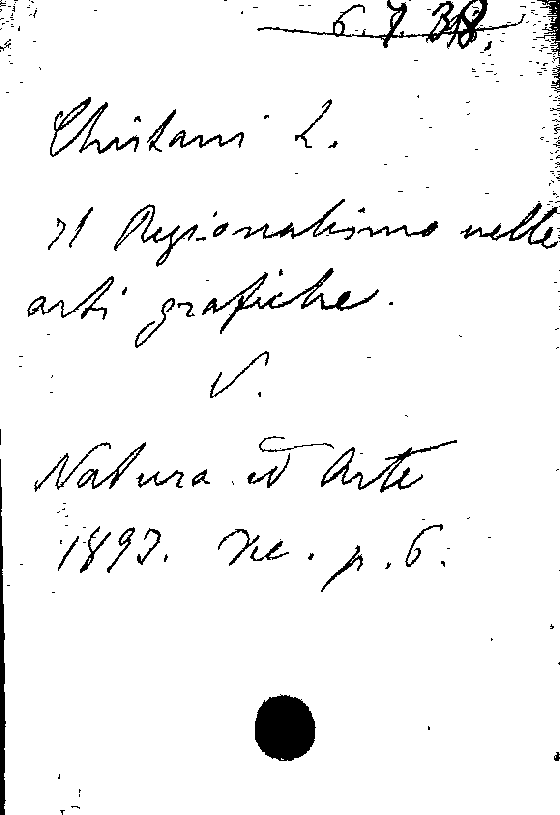 6. 7. 318.
Chirtani L.
Il Regionalismo nelle
arti grafiche.
V.
Natura ed Arte
1893. p. 6.